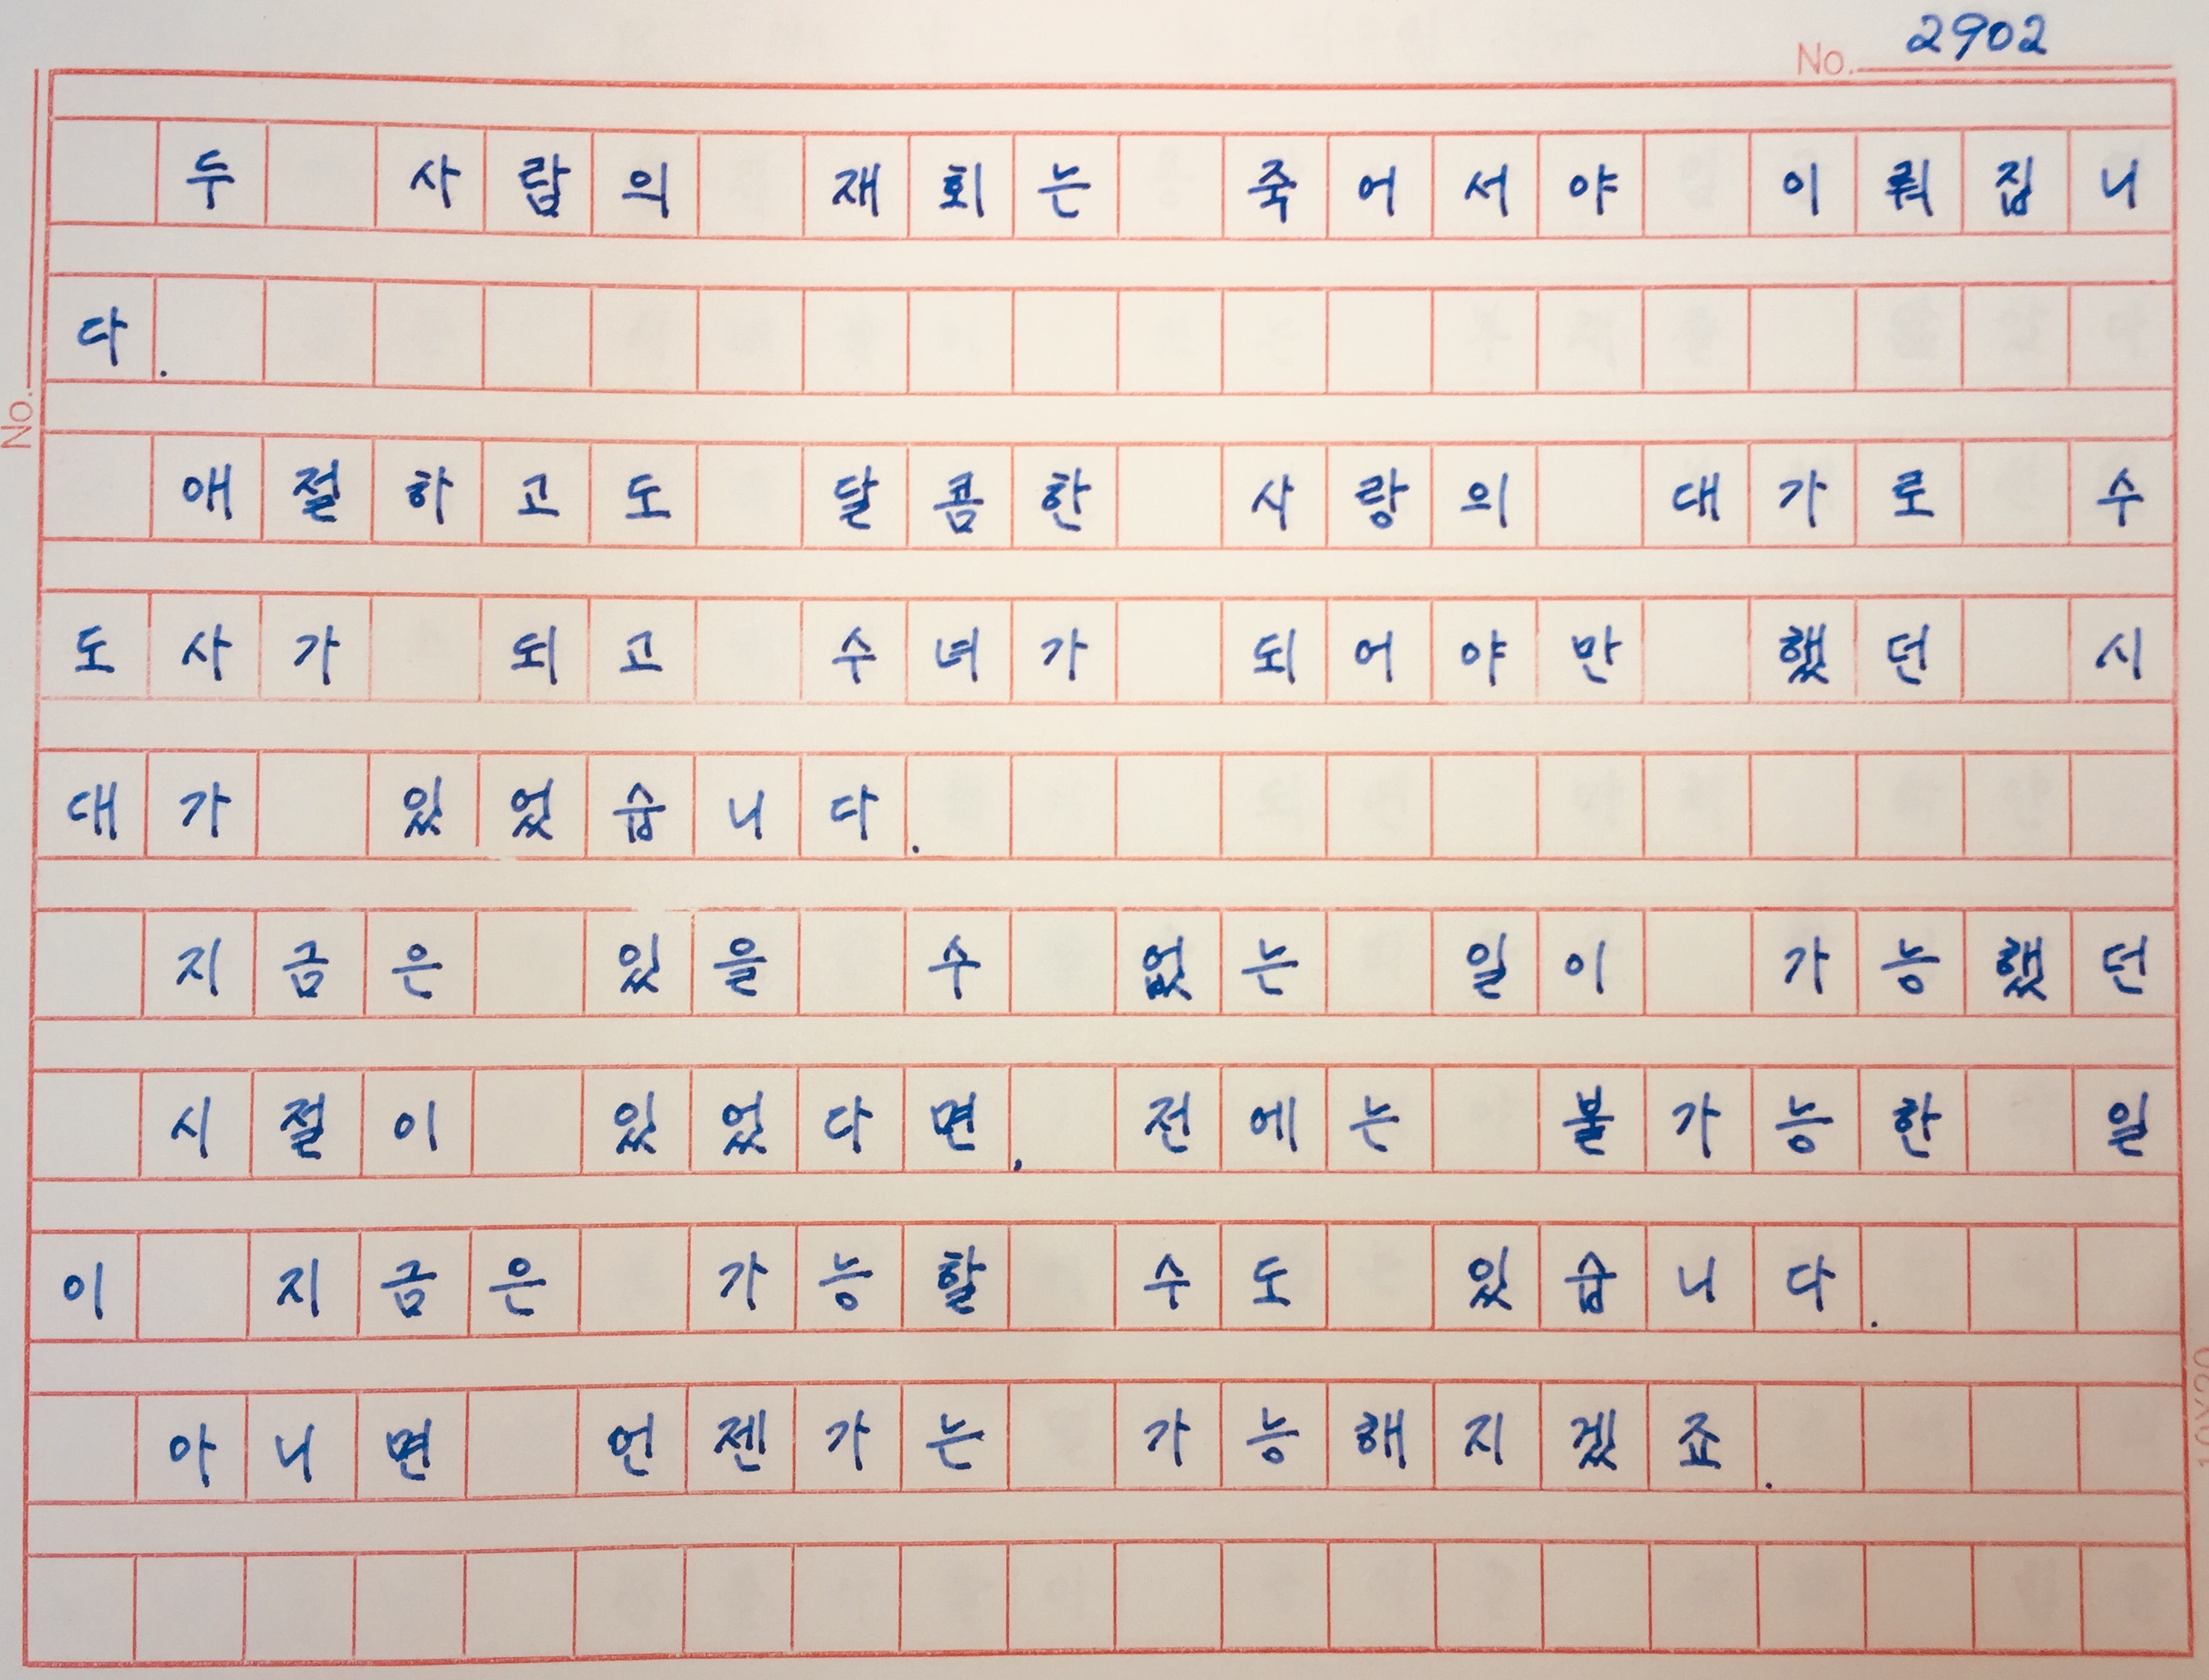 No. 2902
두 사람의 재회는 죽어서야 이뤄집니
다.
No.
애절하고도 달콤한 사랑의 대가로 수
도사가 되고 수녀가 되어야만 했던 시
대가 있었습니다.
지금은 있을 수 없는 일이 가능했던
시절이 있었다면, 전에는 불가능한 일
이 지금은 가능할 수도 있습니다.
아니면 언젠가는 가능해지겠죠.
10X20